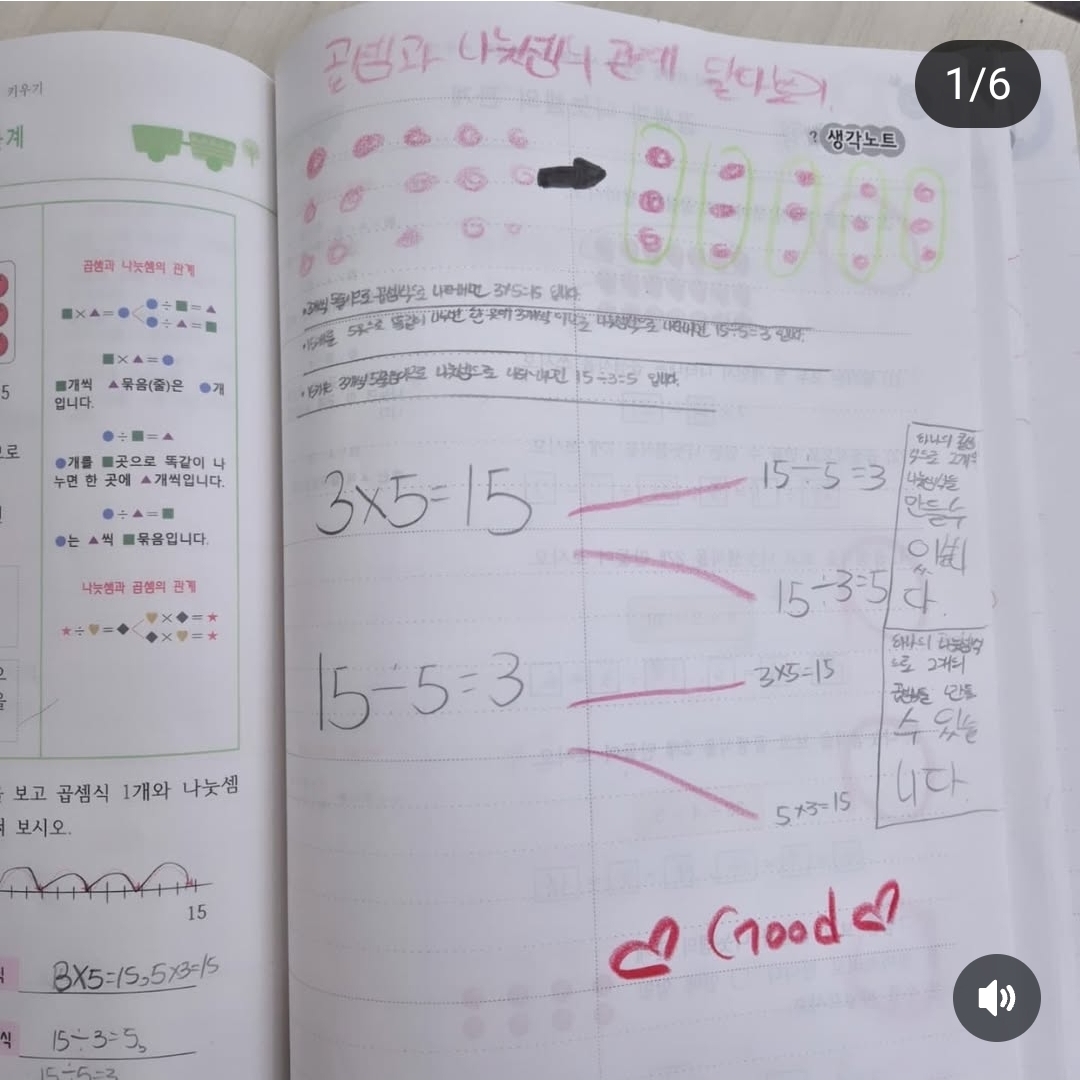 키우기
계
곱셈과 나눗셈의 관계
■×▲=●
●÷■=▲
●÷▲=■
■×▲=●
■개씩 ▲묶음(줄)은 ●개
입니다.
●÷■=▲
●개를 ■곳으로 똑같이 나
누면 한 곳에 ▲개씩입니다.
●÷▲=■
●는 ▲씩 ■묶음입니다.
나눗셈과 곱셈의 관계
★÷♥=◆
♥×◆=★
◆×♥=★
5
으로
보고 곱셈식 1개와 나눗셈
보시오.
15
식
3×5=15, 5×3=15
식
15÷3=5,
15÷5=3
곱셈과 나눗셈의 관계 돌다보기
1/6
? 생각노트
3개씩 곱셈식으로 나타내면 3×5=15 입니다.
15개를 5곳으로 똑같이 나누면 한 곳에 3개씩 나눗셈식으로 나타내면 15÷5=3 입니다.
3개씩 5묶음이므로 나눗셈으로 나타내면 15÷3=5 입니다.
3×5=15
15÷5=3
15÷3=5
하나의 곱셈
식으로 2개의
나눗셈식을
만들수
있습니
다.
15÷5=3
3×5=15
5×3=15
하나의 나눗셈식
으로 2개의
곱셈식을 만들
수 있습
니다.
Good